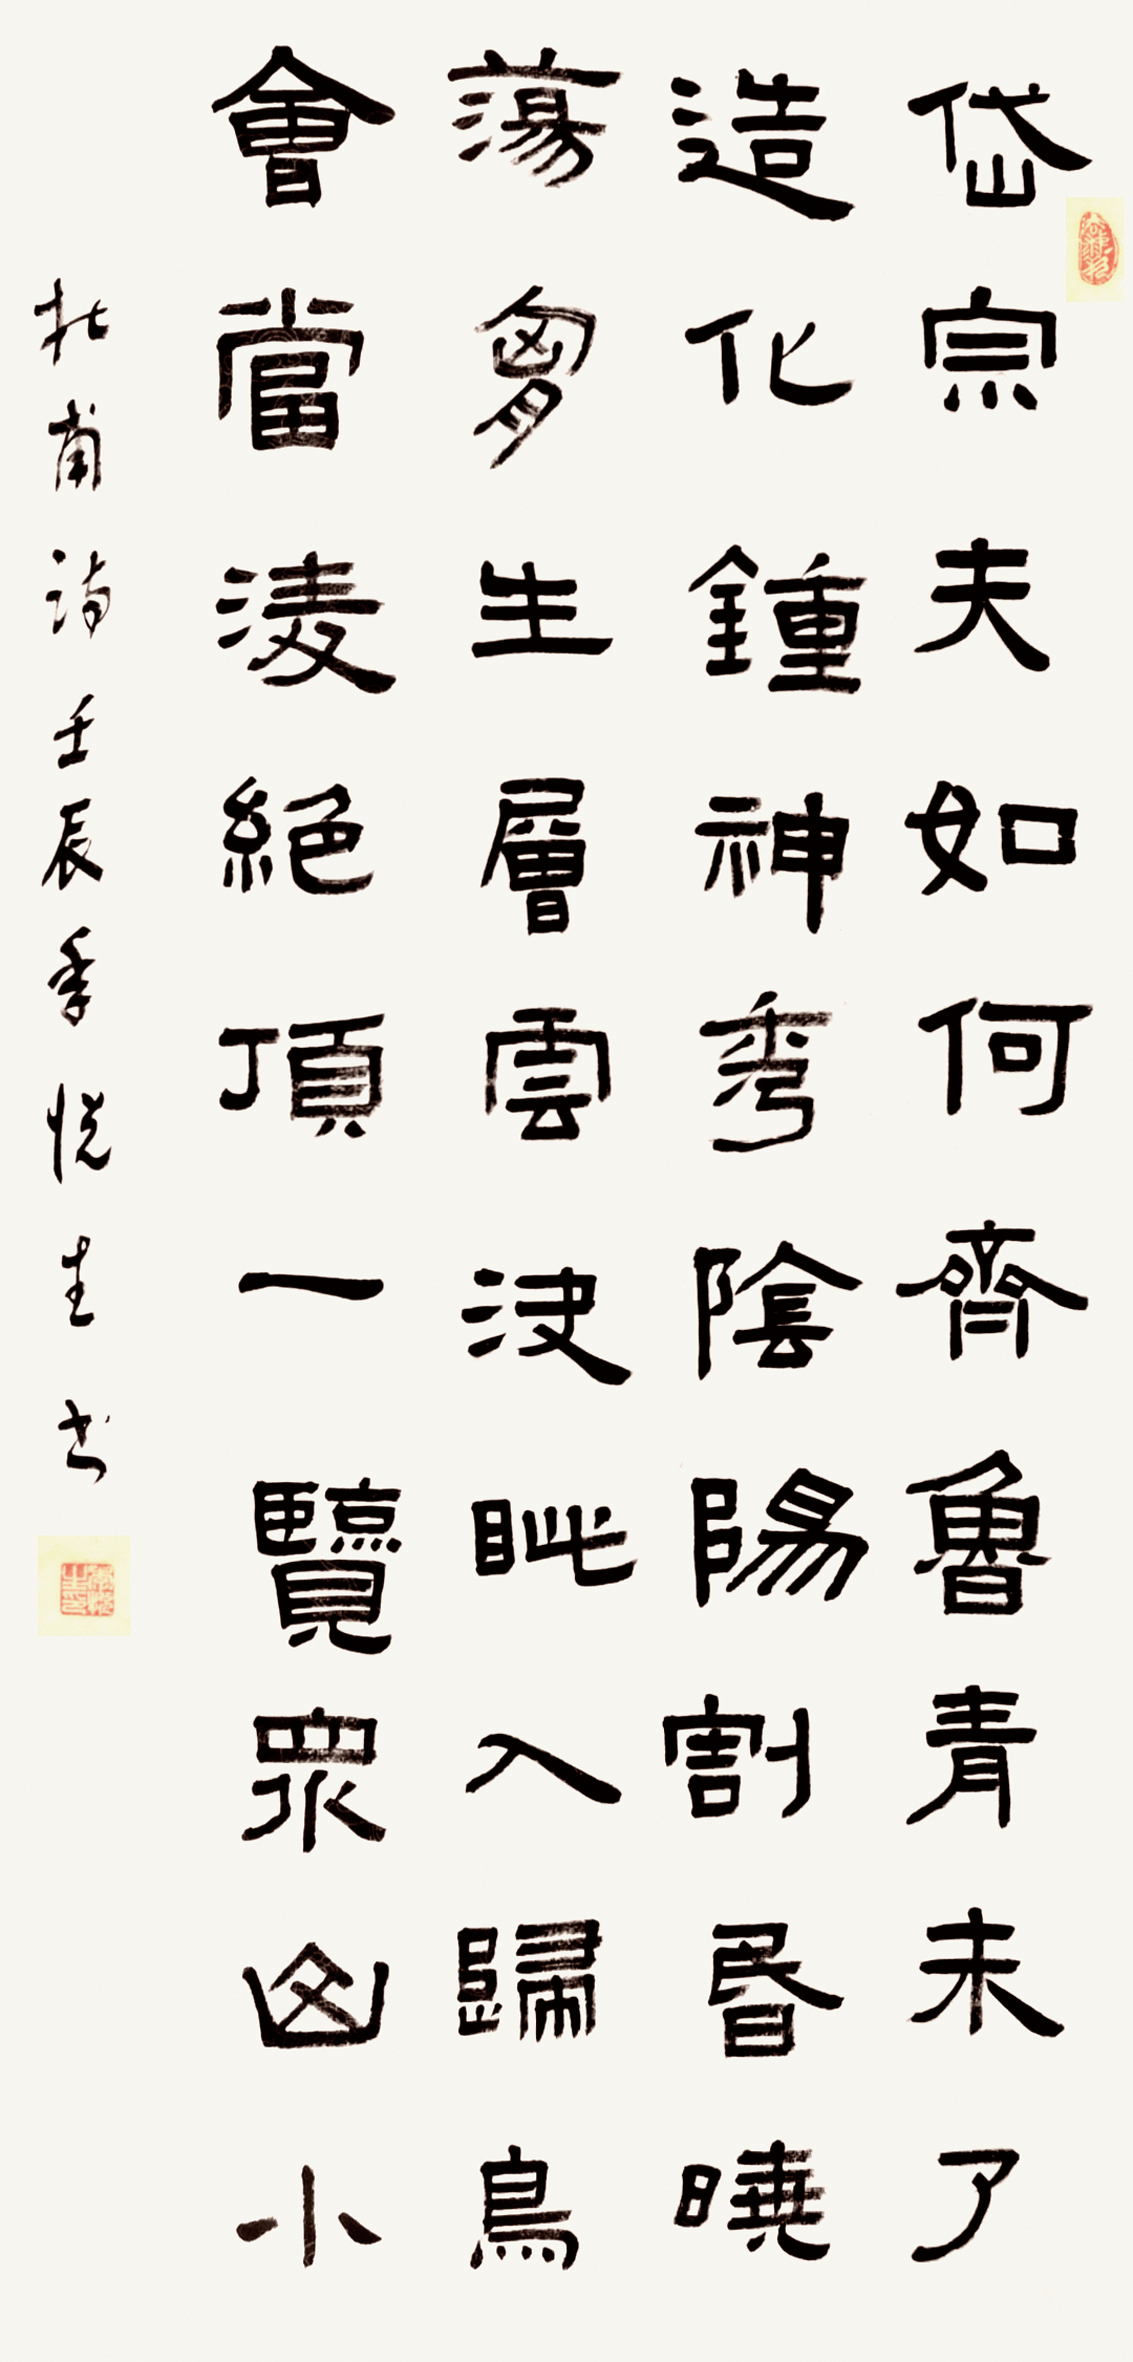 岱宗夫如何齊魯青未了
造化鍾神秀陰陽割昏曉
蕩匈生層雲決眥入歸鳥
會當淩絕頂一覽眾山小
杜甫詩壬辰季悅生书